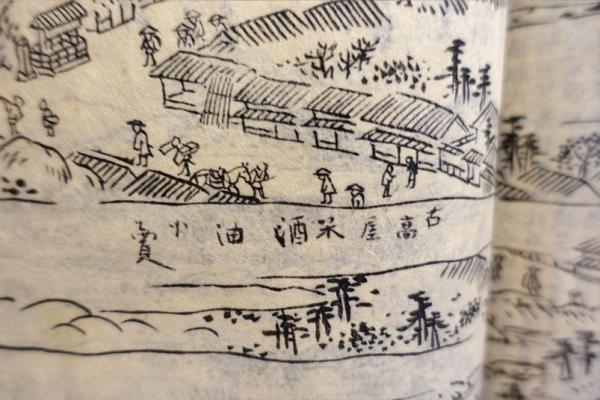 古高屋米酒油小賣